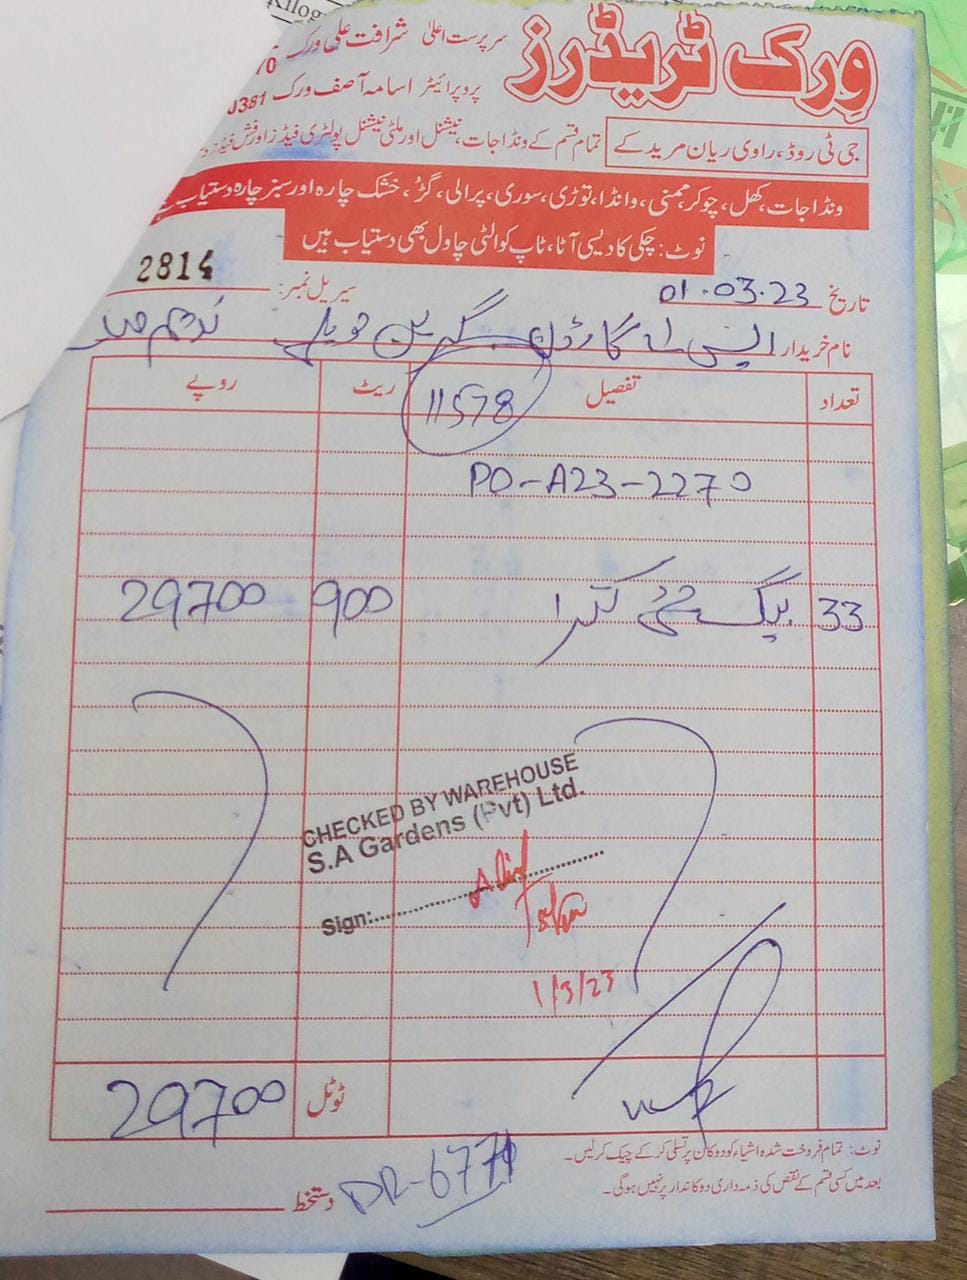 Kilog
ورک ٹریڈرز
سرپرست اعلیٰ شرافت علی ورک
پروپرائیٹر اسامہ آصف ورک 0381
جی ٹی روڈ، راوی ریان مریدکے
تمام قسم کے ونڈا جات، نیشنل اور ملٹی نیشنل پولٹری فیڈز اور فش فیڈز
ونڈا جات، کھل، چوکر، ممنی، وانڈا، توڑی، سوری، پرالی، گڑ، خشک چارہ اور سبز چارہ دستیاب ہے
نوٹ: چکی کا دیسی آٹا، ٹاپ کوالٹی چاول بھی دستیاب ہیں
2814 سیریل نمبر:
تاریخ 01.03.23
نام خریدار ایس اے گارڈن گرین حویلی
تعداد تفصیل ریٹ روپے
11578
PO-A23-2270
33 بیگ کترا 900 29700
CHECKED BY WAREHOUSE
S.A Gardens (Pvt) Ltd.
Sign:
1/3/23
ٹوٹل 29700
نوٹ: تمام فروخت شدہ اشیاء کو دوکان پر تسلی کر کے چیک کر لیں۔
بعد میں کسی قسم کے نقص کی ذمہ داری دوکاندار پر نہیں ہوگی۔
دستخط DR-6771